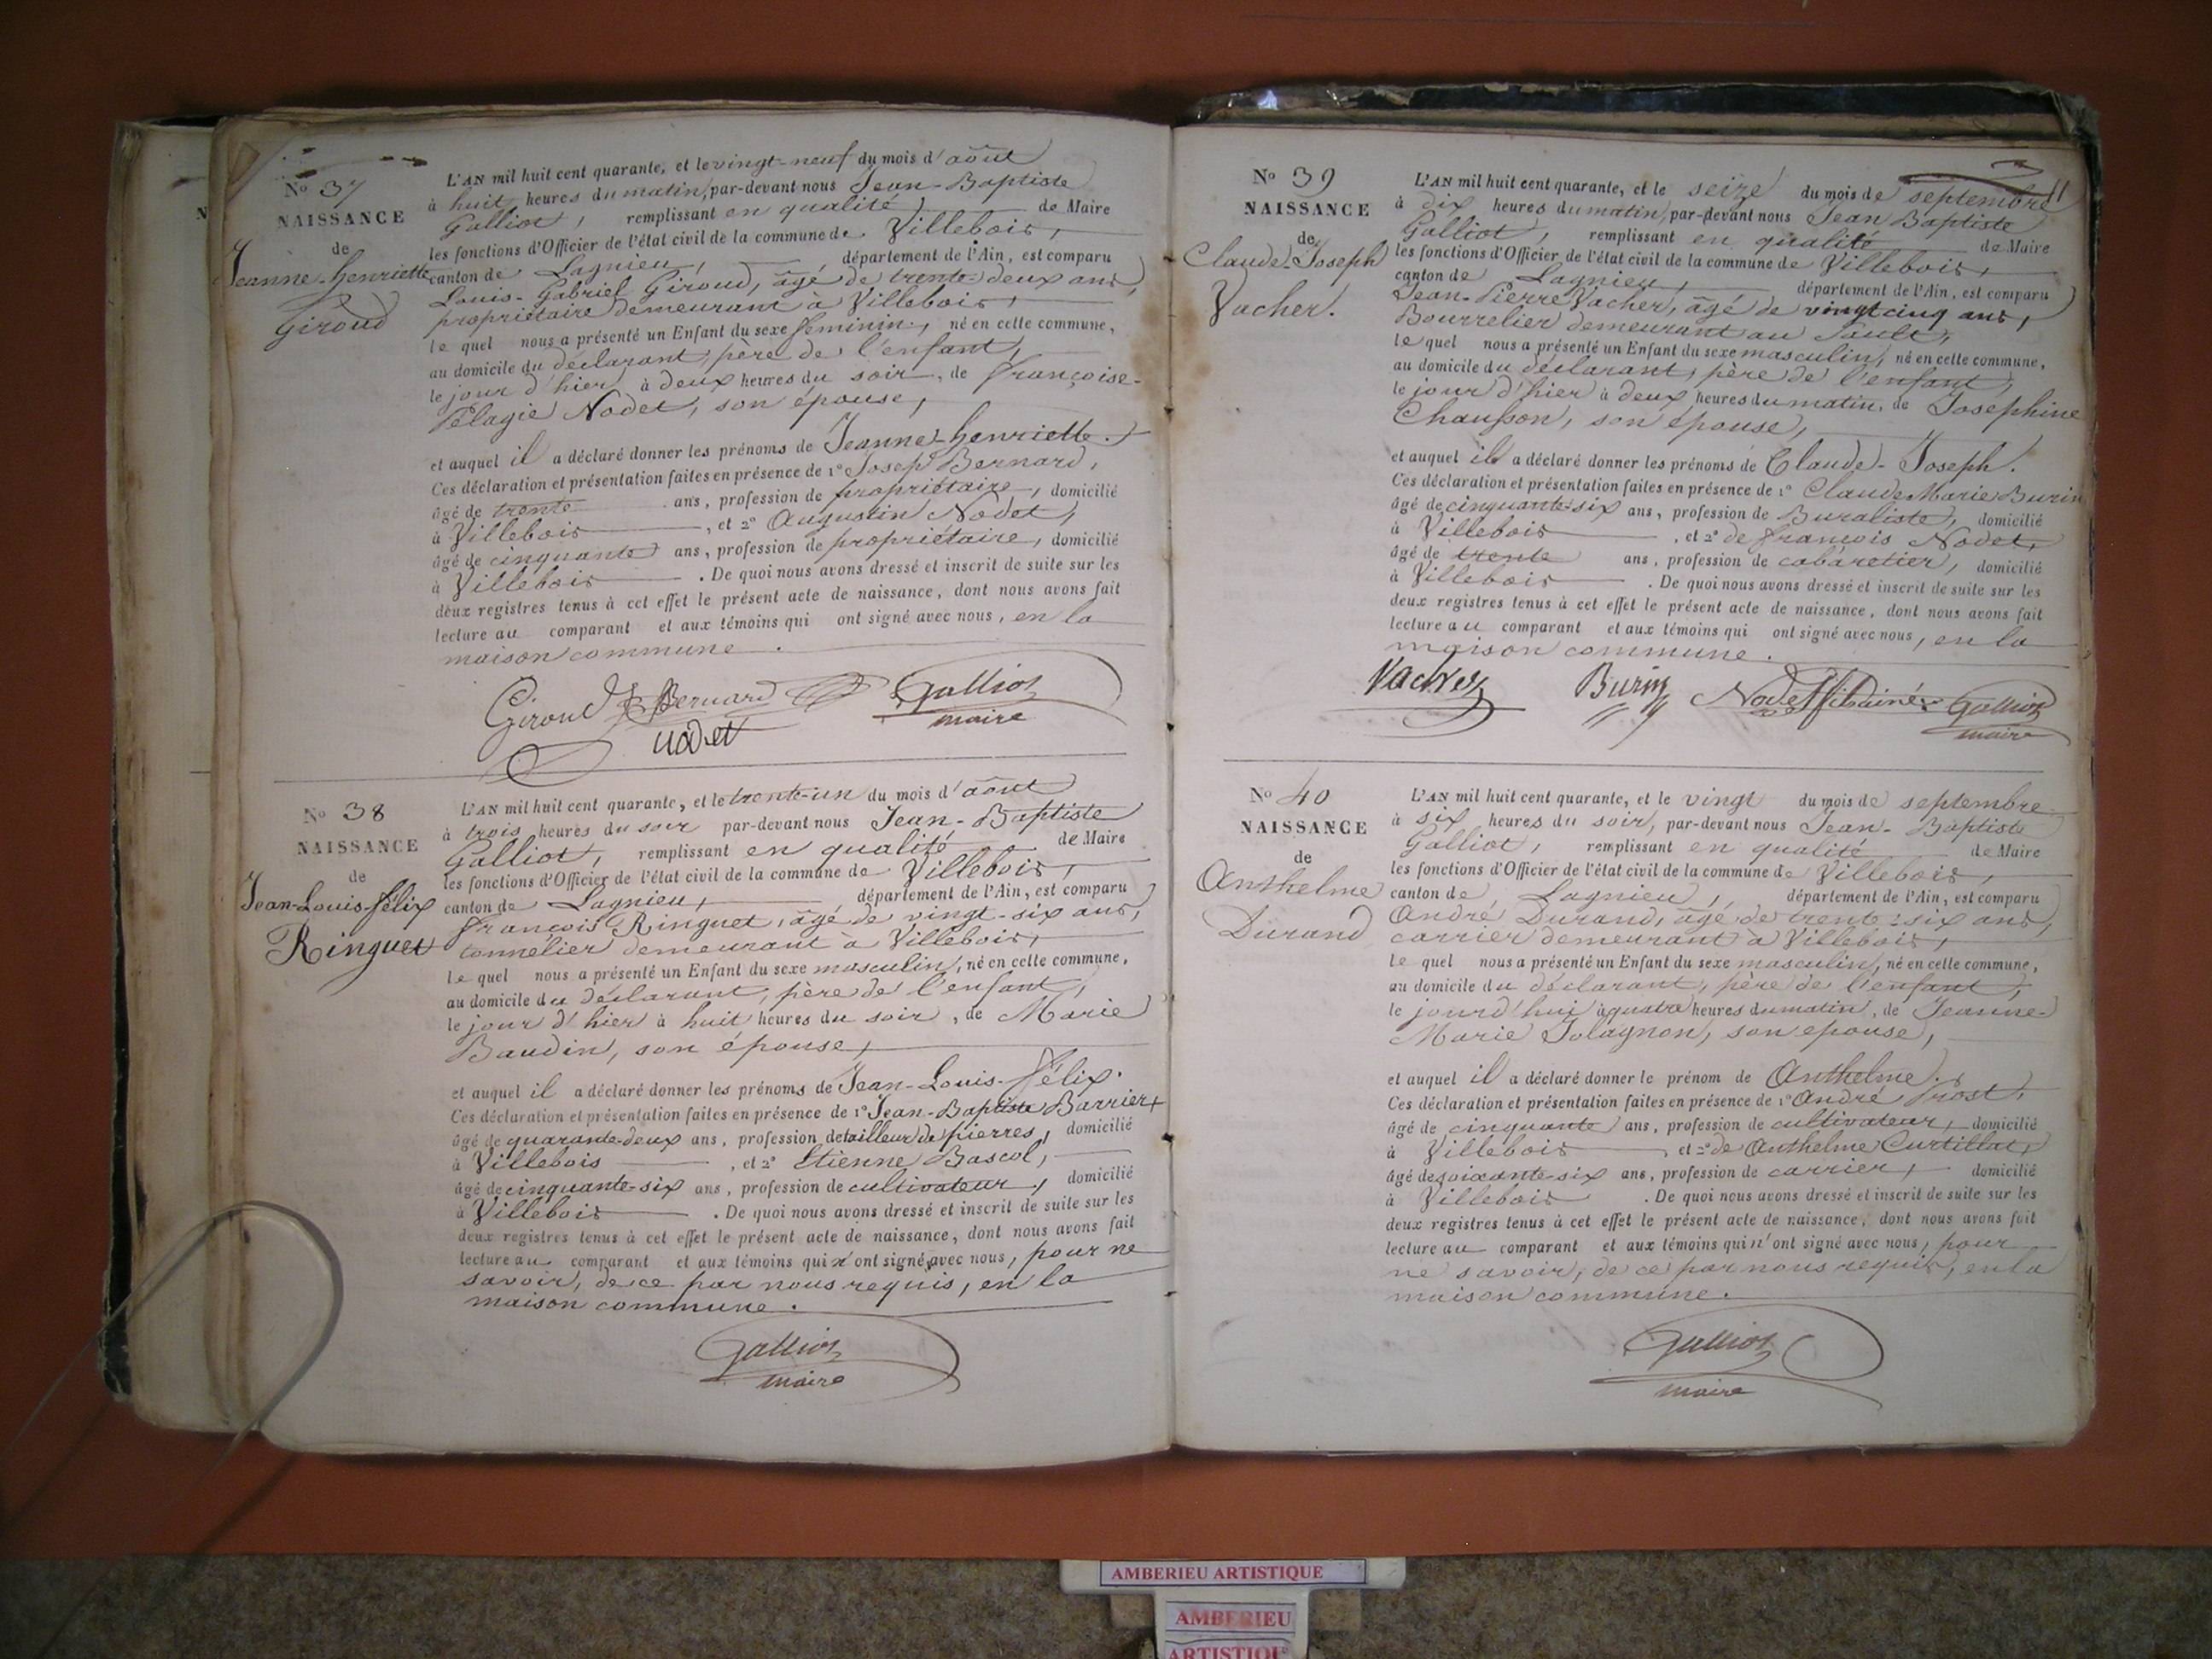 No 37
NAISSANCE
de
Jeanne-henriette
Giroud
L'AN mil huit cent quarante, et le vingt-neuf du mois d'août
à huit heures du matin, par-devant nous Jean-Baptiste
Galliot, remplissant en qualité de Maire
les fonctions d'Officier de l'état civil de la commune de Villebois,
canton de Lagnieu, département de l'Ain, est comparu
Louis-Gabriel Giroud, âgé de trente-deux ans,
propriétaire demeurant à Villebois,
le quel nous a présenté un Enfant du sexe féminin, né en cette commune,
au domicile du déclarant, père de l'enfant,
le jour d'hier, à deux heures du soir, de françoise-
Pélagie Nodet, son épouse,
et auquel il a déclaré donner les prénoms de Jeanne-henriette.
Ces déclaration et présentation faites en présence de 1º Josep Bernard,
âgé de trente ans, profession de propriétaire, domicilié
à Villebois, et 2º Augustin Nodet,
âgé de cinquante ans, profession de propriétaire, domicilié
à Villebois. De quoi nous avons dressé et inscrit de suite sur les
deux registres tenus à cet effet le présent acte de naissance, dont nous avons fait
lecture au comparant et aux témoins qui ont signé avec nous, en la
maison commune.
Giroud Bernard Galliot
nodet maire
No 38
NAISSANCE
de
Jean-Louis-félix
Ringuet
L'AN mil huit cent quarante, et le trente-un du mois d'août
à trois heures du soir par-devant nous Jean-Baptiste
Galliot, remplissant en qualité de Maire
les fonctions d'Officier de l'état civil de la commune de Villebois,
canton de Lagnieu, département de l'Ain, est comparu
françois Ringuet, âgé de vingt-six ans,
tonnelier demeurant à Villebois,
le quel nous a présenté un Enfant du sexe masculin, né en cette commune,
au domicile du déclarant, père de l'enfant,
le jour d'hier à huit heures du soir, de Marie
Baudin, son épouse,
et auquel il a déclaré donner les prénoms de Jean-Louis-félix.
Ces déclaration et présentation faites en présence de 1º Jean-Baptiste Barrier,
âgé de quarante-deux ans, profession de tailleur de pierres, domicilié
à Villebois, et 2º Etienne Bascol,
âgé de cinquante-six ans, profession de cultivateur, domicilié
à Villebois. De quoi nous avons dressé et inscrit de suite sur les
deux registres tenus à cet effet le présent acte de naissance, dont nous avons fait
lecture au comparant et aux témoins qui n'ont signé avec nous, pour ne
savoir, de ce par nous requis, en la
maison commune.
Galliot
maire
No 39
NAISSANCE
de
Claude-Joseph
Vacher.
L'AN mil huit cent quarante, et le seize du mois de septembre
à dix heures du matin, par-devant nous Jean Baptiste
Galliot, remplissant en qualité de Maire
les fonctions d'Officier de l'état civil de la commune de Villebois,
canton de Lagnieu, département de l'Ain, est comparu
Jean-Pierre Vacher, âgé de vingt cinq ans,
Bourrelier demeurant au Sault,
le quel nous a présenté un Enfant du sexe masculin, né en cette commune,
au domicile du déclarant, père de l'enfant,
le jour d'hier à deux heures du matin, de Josephine
Chausson, son épouse,
et auquel il a déclaré donner les prénoms de Claude-Joseph.
Ces déclaration et présentation faites en présence de 1º Claude Marie Burin
âgé de cinquante-six ans, profession de Buraliste, domicilié
à Villebois, et 2º de françois Nodet,
âgé de trente ans, profession de cabaretier, domicilié
à Villebois. De quoi nous avons dressé et inscrit de suite sur les
deux registres tenus à cet effet le présent acte de naissance, dont nous avons fait
lecture au comparant et aux témoins qui ont signé avec nous, en la
maison commune.
Vacher Burin Nodet fils ainé Galliot
maire
No 40
NAISSANCE
de
Anthelme
Durand
L'AN mil huit cent quarante, et le vingt du mois de septembre
à six heures du soir, par-devant nous Jean-Baptiste
Galliot, remplissant en qualité de Maire
les fonctions d'Officier de l'état civil de la commune de Villebois,
canton de Lagnieu, département de l'Ain, est comparu
André Durand, âgé de trente-six ans,
carrier demeurant à Villebois,
le quel nous a présenté un Enfant du sexe masculin, né en cette commune,
au domicile du déclarant, père de l'enfant,
le jourd'hui à quatre heures du matin, de Jeanne-
Marie Solagnon, son epouse,
et auquel il a déclaré donner le prénom de Anthelme.
Ces déclaration et présentation faites en présence de 1º André Prost,
âgé de cinquante ans, profession de cultivateur, domicilié
à Villebois, et 2º de Anthelme Curtillat,
âgé de soixante-six ans, profession de carrier, domicilié
à Villebois. De quoi nous avons dressé et inscrit de suite sur les
deux registres tenus à cet effet le présent acte de naissance, dont nous avons fait
lecture au comparant et aux témoins qui n'ont signé avec nous, pour
ne savoir, de ce par nous requis, en la
maison commune.
Galliot
maire
AMBERIEU ARTISTIQUE
AMBERIEU
ARTISTIQUE